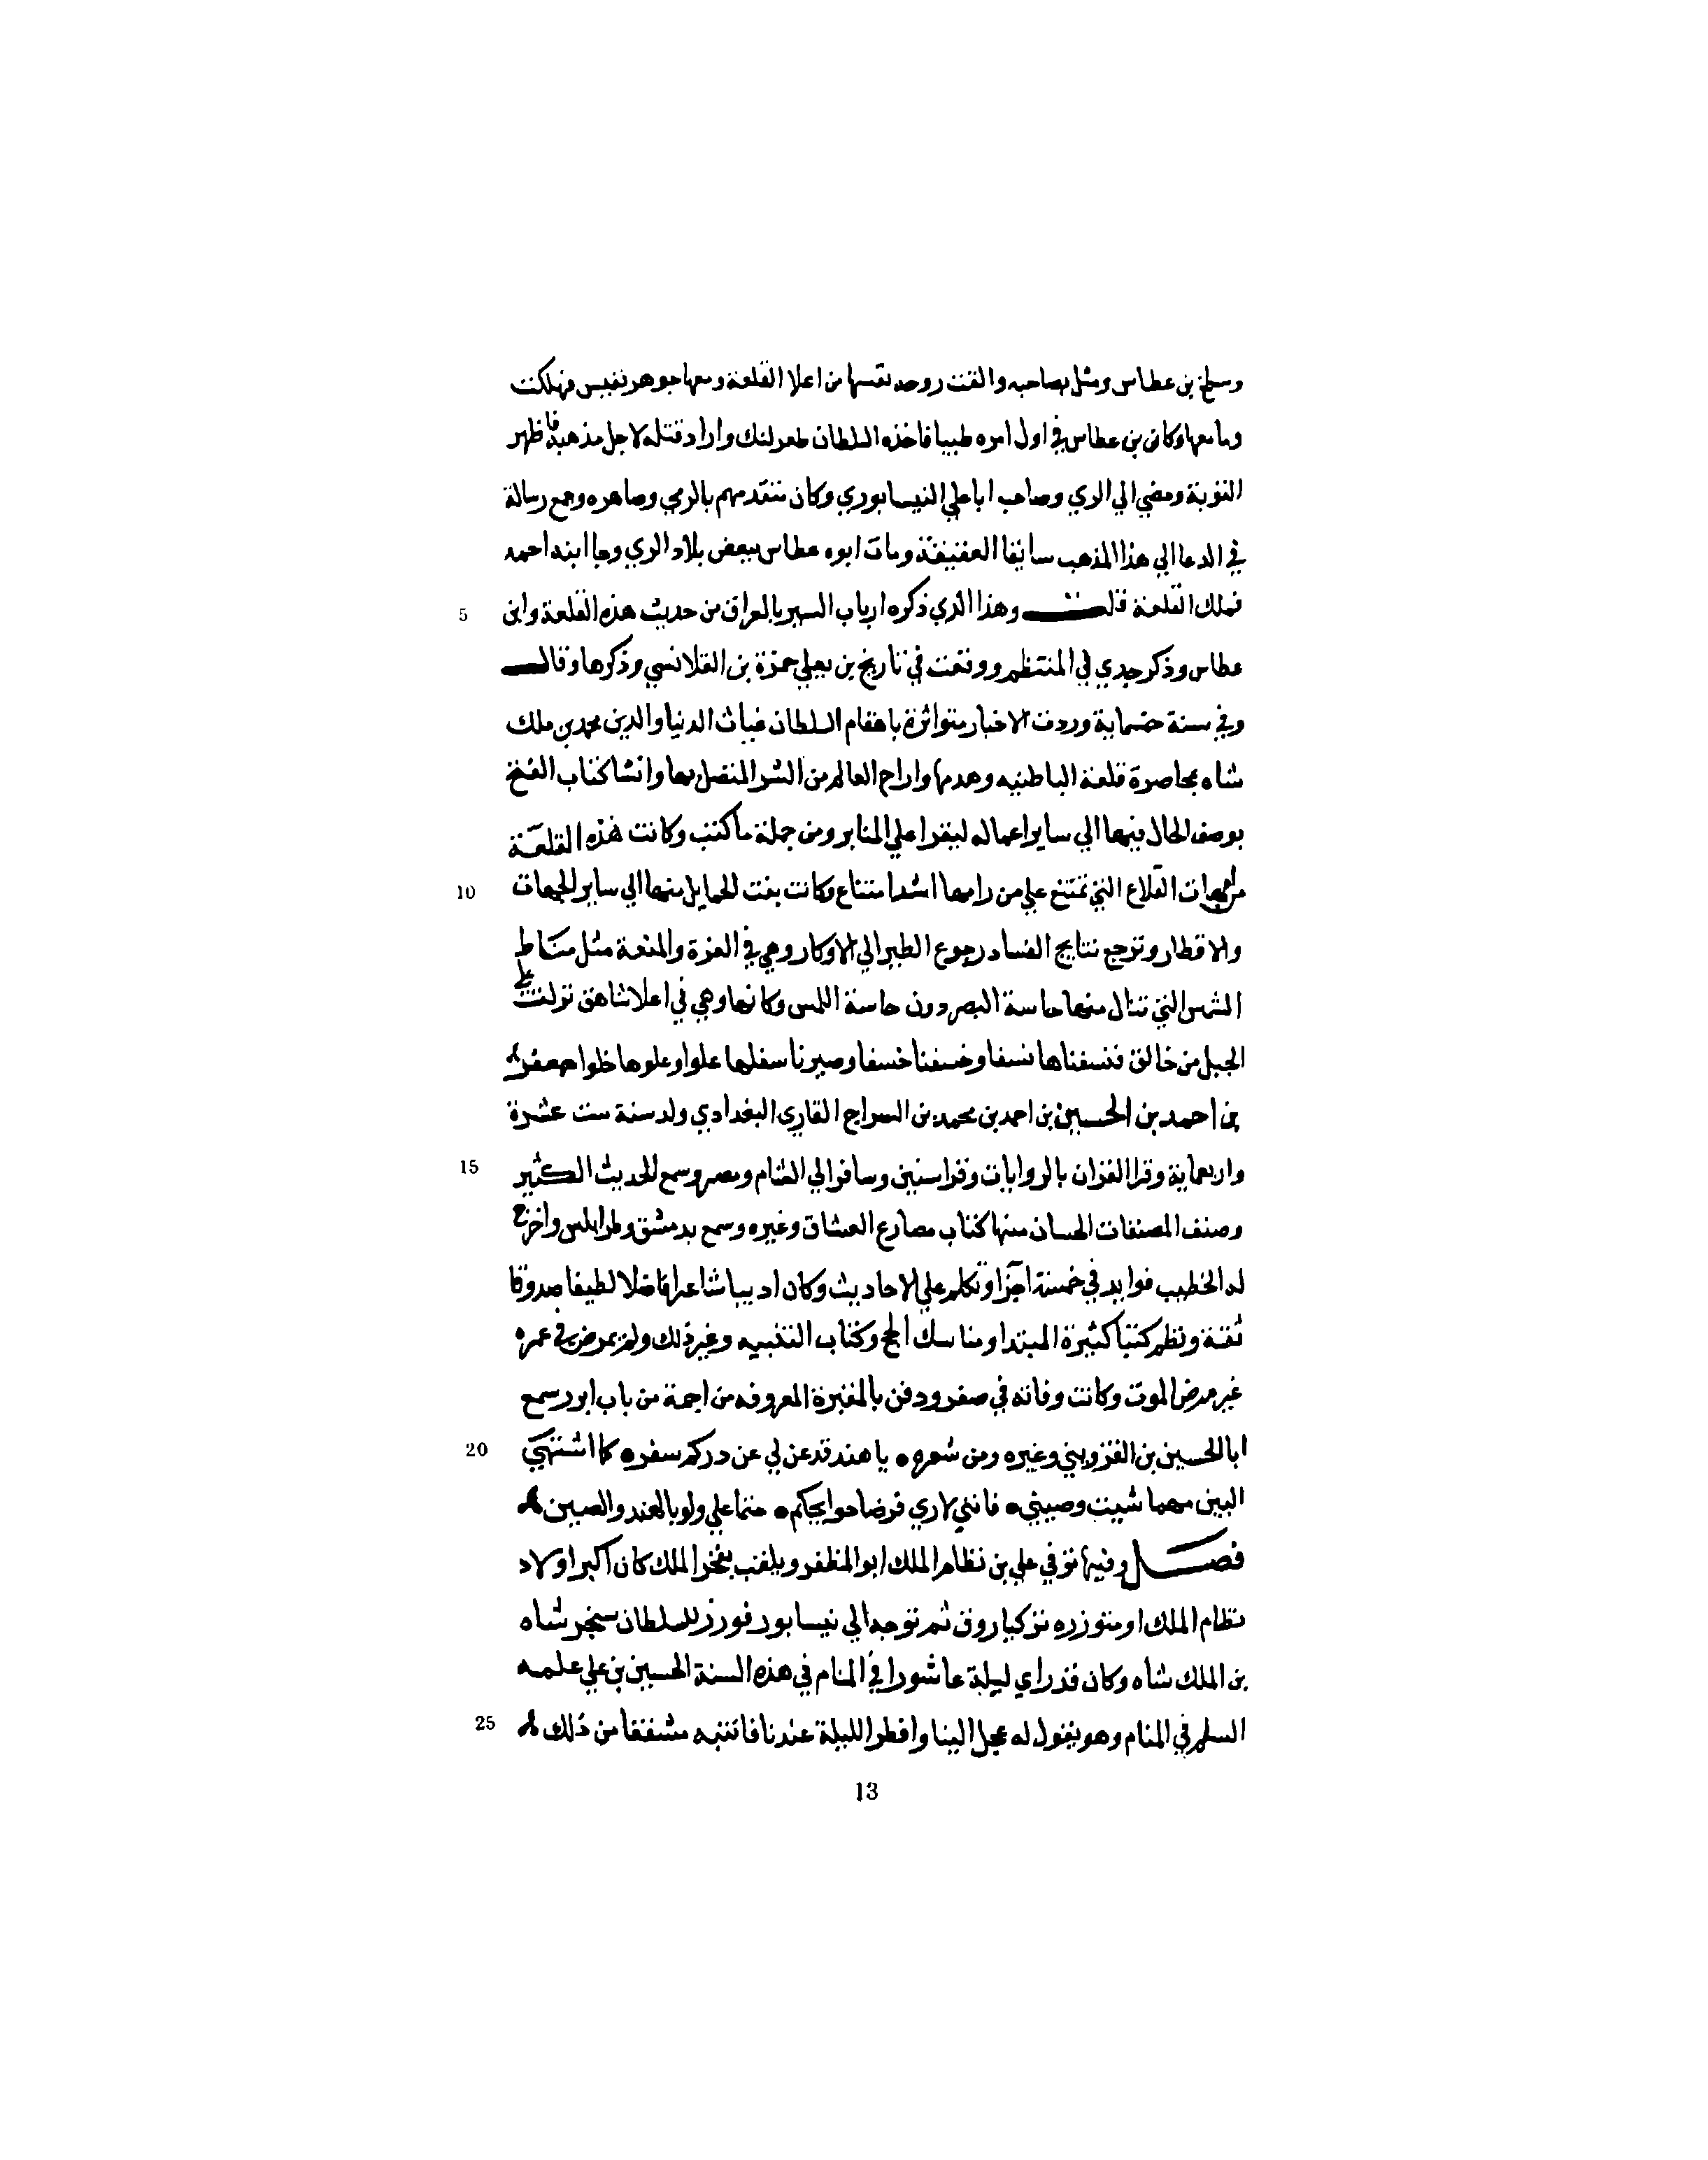 وسلخ بن عطاس ومثل بصاحبه والقت زوجته نفسها من اعلا القلعة ومعها جوهر نفيس فهلكت
وما معها وكان بن عطاس في اول امره طبيبا فاخذه السلطان طغرلنك واراد قتله لاجل مذهبه فاظهر
التوبة ومضي الي الري وصاحب ابا علي النيسابوري وكان متقدمهم بالري وصاهره وجمع رسالة
في الدعا الي هذا المذهب سابقا ومات ابوه عطاس ببعض بلاد الري وجا ابنه احمد
فملك القلعة قلت وهذا الذي ذكره ارباب السير بالعراق من حديث هذه القلعة وابن
5
عطاس وذكر جدي في المنتظم ووقعت في تاريخ بن يعلي حمزة بن القلانسي وذكرها وقال
وفي سنة خمسماية وردت الاخبار متواترة باهتمام السلطان غياث الدنيا والدين محمد بن ملك
شاه بمحاصرة قلعة الباطنيه وهدمها واراح العالم من الشر المتصل بها وانشا كتاب الفتح
بوصف الحال فيها الي ساير اعماله ليقرا علي المنابر ومن جملة ما كتب وكانت هذه القلعة
من امهات القلاع التي تمتنع علي من رامها اشد امتناع وكانت بفت الحمايل منها الي ساير الجهات
10
والاقطار وترجع نتايج الفساد رجوع الطير الي الاوكار وهي في العزة والمنعة مثل مناط
الشمس التي تنال منها حاسة البصر دون حاسة اللمس وكانها وهي في اعلا شاهق نزلت علي
الجبل من خالق فنسفناها نسفا وخسفنا خسفا وصيرنا سفلها علوا وعلوها خلوا جعفر
بن احمد بن الحسين بن احمد بن محمد بن السراج القاري البغدادي ولد سنة ست عشرة
واربعماية وقرا القران بالروايات وقرا سنين وسافر الي الشام ومصر وسمع الحديث الكثير
15
وصنف المصنفات الحسان منها كتاب مصارع العشاق وغيره وسمع بدمشق وطرابلس واخرج
له الخطيب فوايد في خمسة اجزا وتكلم علي الاحاديث وكان اديبا شاعرا فاضلا لطيفا صدوقا
ثقة ونظم كتبا كثيرة المبتدا ومناسك الحج وكتاب التنبيه وغير ذلك ولم يمرض في عمره
غير مرض الموت وكانت وفاته في صفر ودفن بالمقبرة المعروفه من اجمة من باب ابرز سمع
ابا الحسين بن القزويني وغيره ومن شعره • يا هند قد عن لي عن دركم سفر • كما اشتهي
20
البين مهما شيت وصيني • فانني لاري فرضا حوايجكم • حتما علي ولو بالهند والصين
فصل وفيها توفي علي بن نظام الملك ابو المظفر ويلقب بفخر الملك كان اكبر اولاد
نظام الملك او متوزره بركيا روق ثم توجه الي نيسابور فوزر للسلطان سنجر شاه
بن الملك شاه وكان قد راي ليلة عاشورا في المنام في هذه السنة الحسين بن علي عليه
السلم في المنام وهو يقول له عجل الينا وافطر الليلة عندنا فانتبه مشفقا من ذلك
25
13